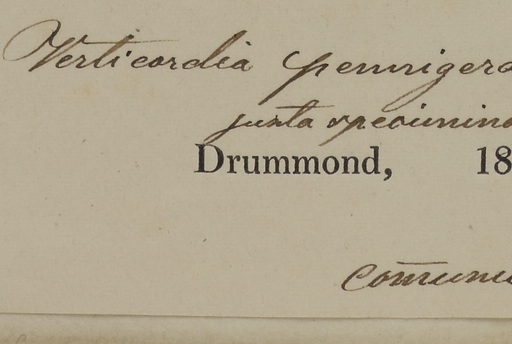 Verticordia pennigera
juxta specimina
Drummond, 18
com̄uni